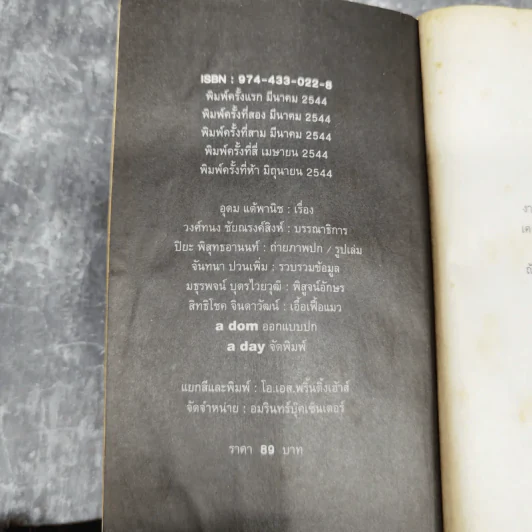 ISBN : 974-433-022-8
พิมพ์ครั้งแรก มีนาคม 2544
พิมพ์ครั้งที่สอง มีนาคม 2544
พิมพ์ครั้งที่สาม มีนาคม 2544
พิมพ์ครั้งที่สี่ เมษายน 2544
พิมพ์ครั้งที่ห้า มิถุนายน 2544
อุดม แต้พานิช : เรื่อง
วงศ์ทนง ชัยณรงค์สิงห์ : บรรณาธิการ
ปิยะ พิสุทธอานนท์ : ถ่ายภาพปก / รูปเล่ม
จันทนา ปวนเพิ่ม : รวบรวมข้อมูล
มธุรพจน์ บุตรไวยวุฒิ : พิสูจน์อักษร
สิทธิโชค จินดาวัฒน์ : เอื้อเฟื้อแมว
a dom ออกแบบปก
a day จัดพิมพ์
แยกสีและพิมพ์ : โอ.เอส.พริ้นติ้งเฮ้าส์
จัดจำหน่าย : อมรินทร์บุ๊คเซ็นเตอร์
ราคา 89 บาท